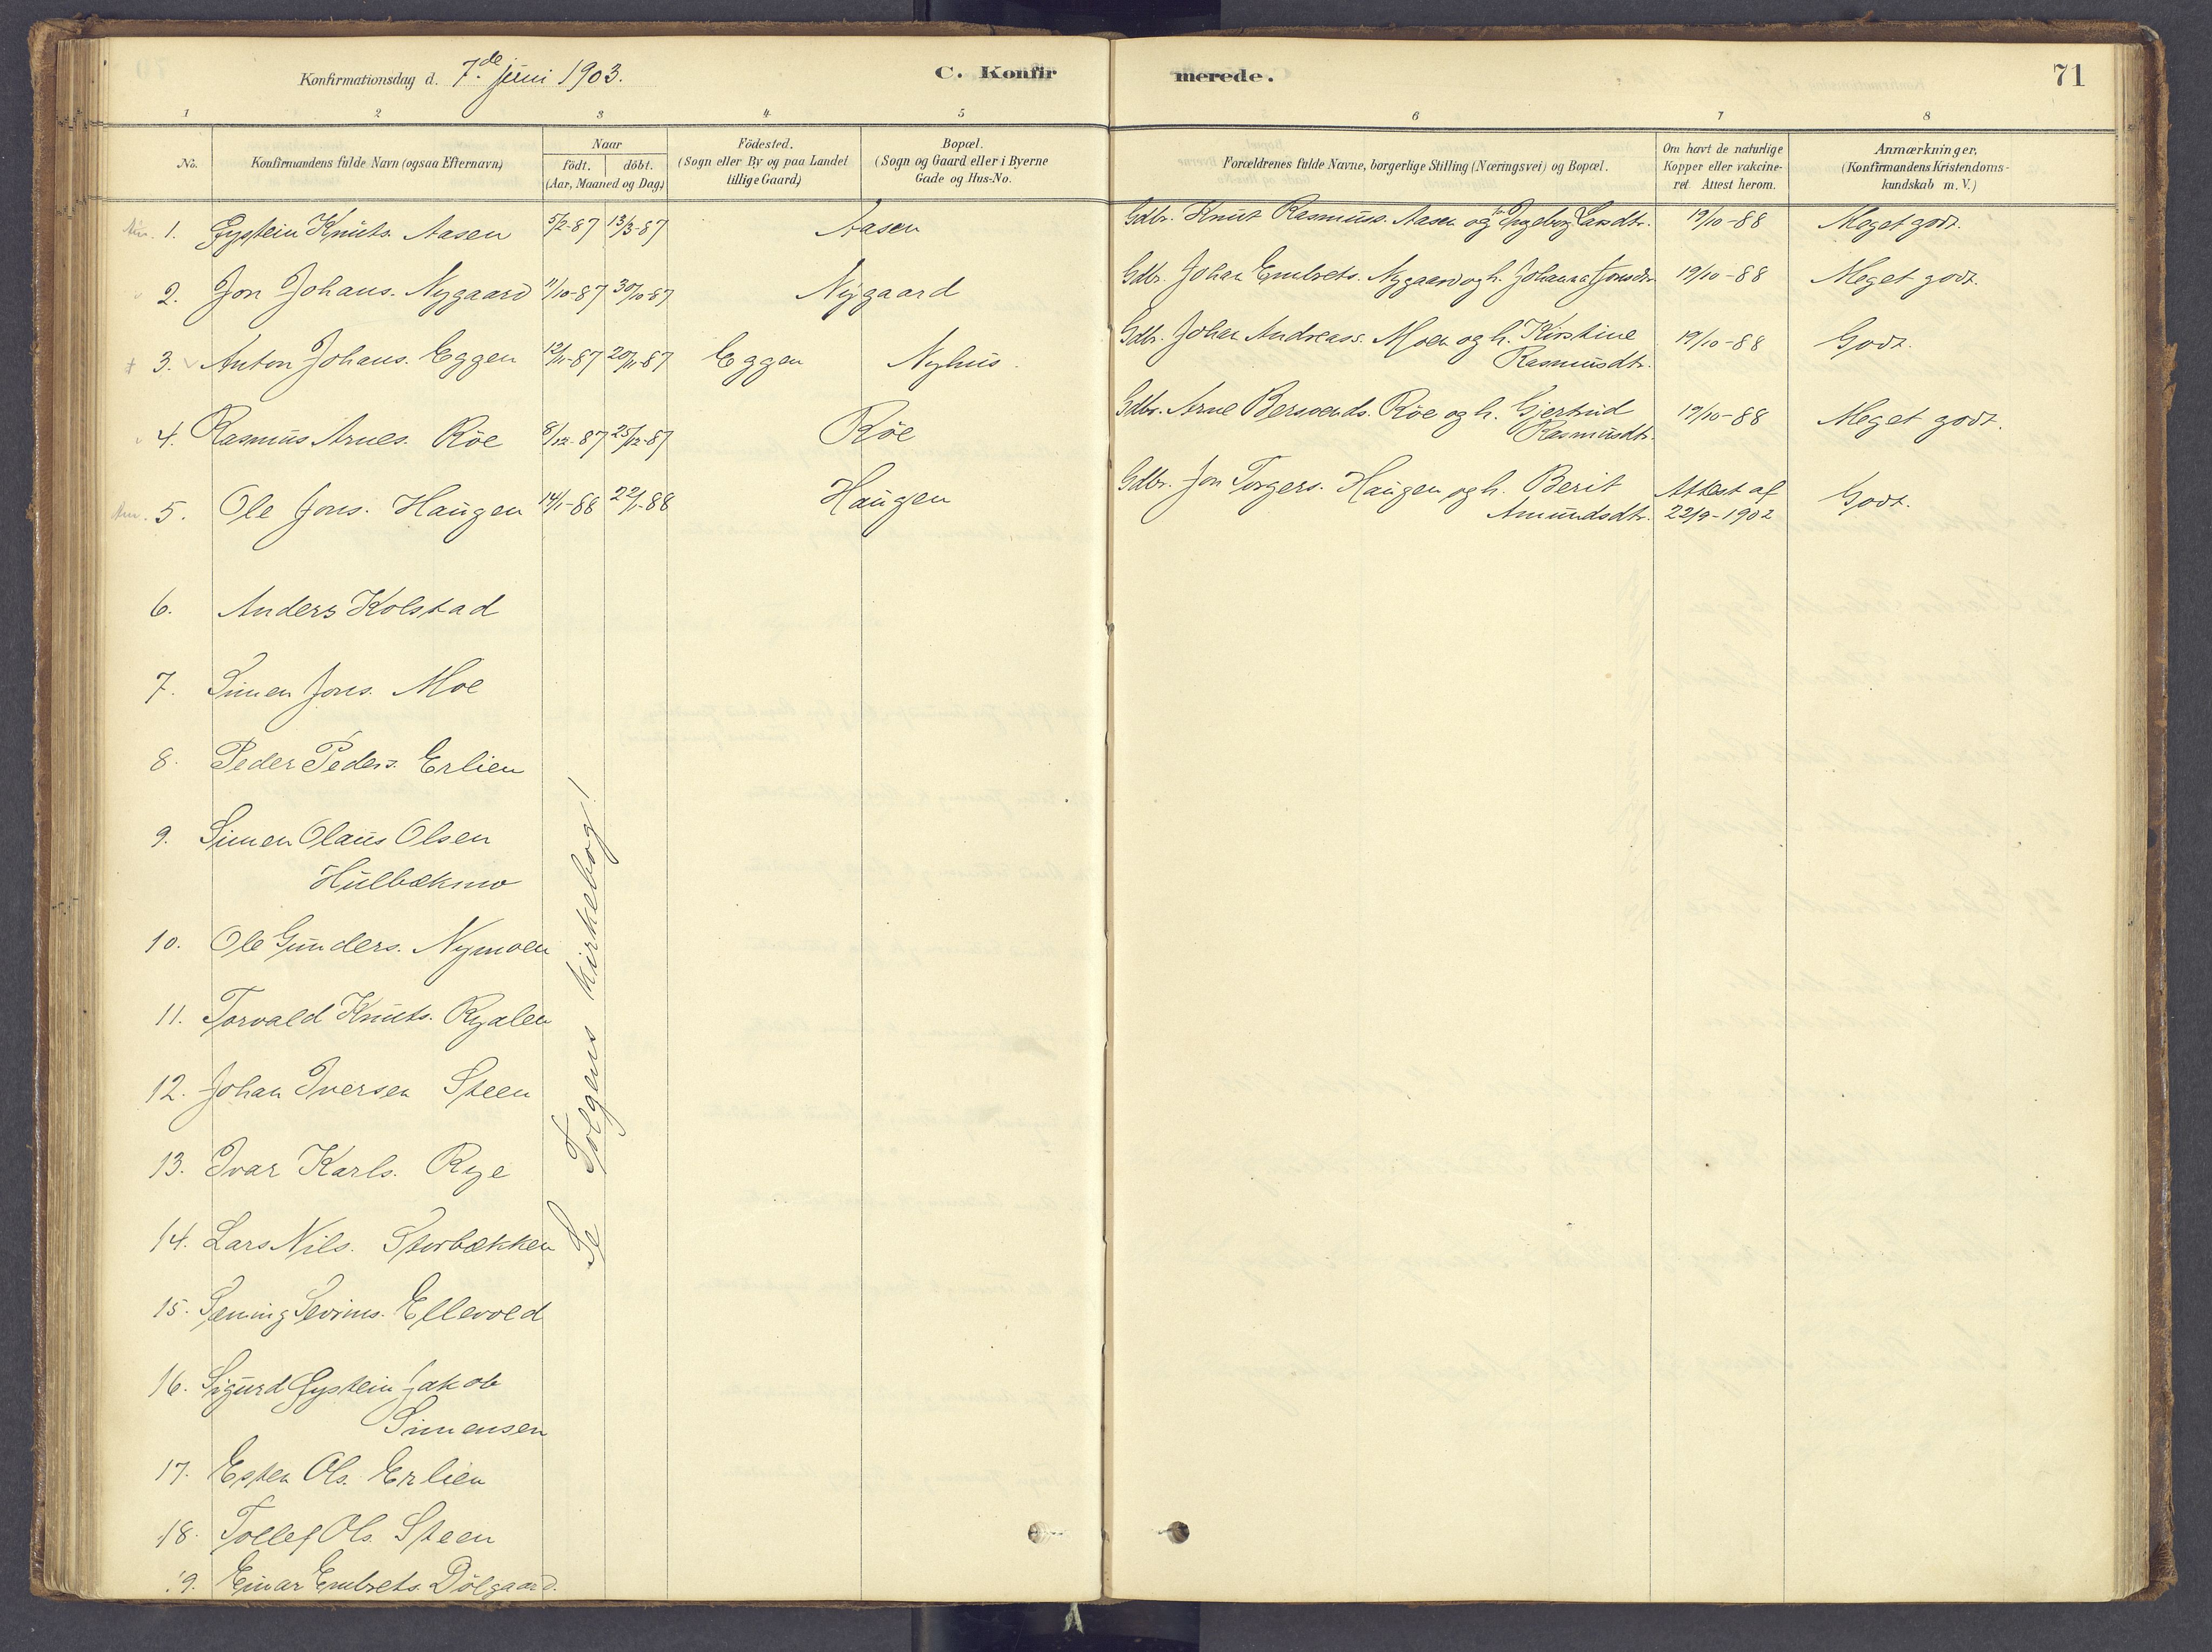 Konfirmationsdag d. 7.de juni 1903.
C. Konfirmerede.
71
1 2 3 4 5 6 7 8
No.
Konfirmandens fulde Navn (ogsaa Efternavn)
Naar
födt. döbt.
(Aar, Maaned og Dag)
Födested.
(Sogn eller By og paa Landet
tillige Gaard)
Bopæl.
(Sogn og Gaard eller i Byerne
Gade og Hus-No.
Forældrenes fulde Navne, borgerlige Stilling (Næringsvei) og Bopæl.
Om havt de naturlige
Kopper eller vakcine-
ret. Attest herom.
Anmærkninger,
(Konfirmandens Kristendoms-
kundskab m. V.)
1. Eystein Knuts. Aasen 5/2-87 13/3-87 Aasen Gdbr. Knut Rasmuss. Aasen og h. Ingeborg Larsdtr. 19/10-88 Meget godt.
2. Jon Johans. Nygaard 11/10-87 30/10-87 Nygaard Gdbr. Johan Embrets. Nygaard og h. Johanna Jonsdtr. 19/10-88 Meget godt.
3. Anton Johans. Eggen 12/11-87 20/11-87 Eggen Nyhus. Gdbr. Johan Andreass. Moen og h. Kirstine
Rasmusdtr. 19/10-88 Godt.
4. Rasmus Arnes. Röe 8/12-87 25/12-87 Röe Gdbr. Arne Bersvends. Röe og h. Gjertrud
Rasmusdtr. 19/10-88 Meget godt.
5. Ole Jons. Haugen 14/1-88 22/1-88 Haugen Gdbr. Jon Torgers. Haugen og h. Berit
Amundsdtr. Attest af
22/9-1902 Godt.
6. Anders Kolstad
7. Simen Jons. Moe
8. Peder Peders. Erlien
9. Simen Olaus Olsen
Hulbækmo
10. Ole Gunders. Nymoen
11. Torvald Knuts. Ryalen
12. Johan Iversen Steen
13. Ivar Karls. Rye
14. Lars Nils. Storbækken
15. Sæming Sevrins. Ellevold
16. Sigurd Eystein Jakob
Simensen
17. Esten Ols. Erlien
18. Tollef Ols. Steen
19. Einar Embrets. Dölgaard.
Se Tolgens kirkebog!